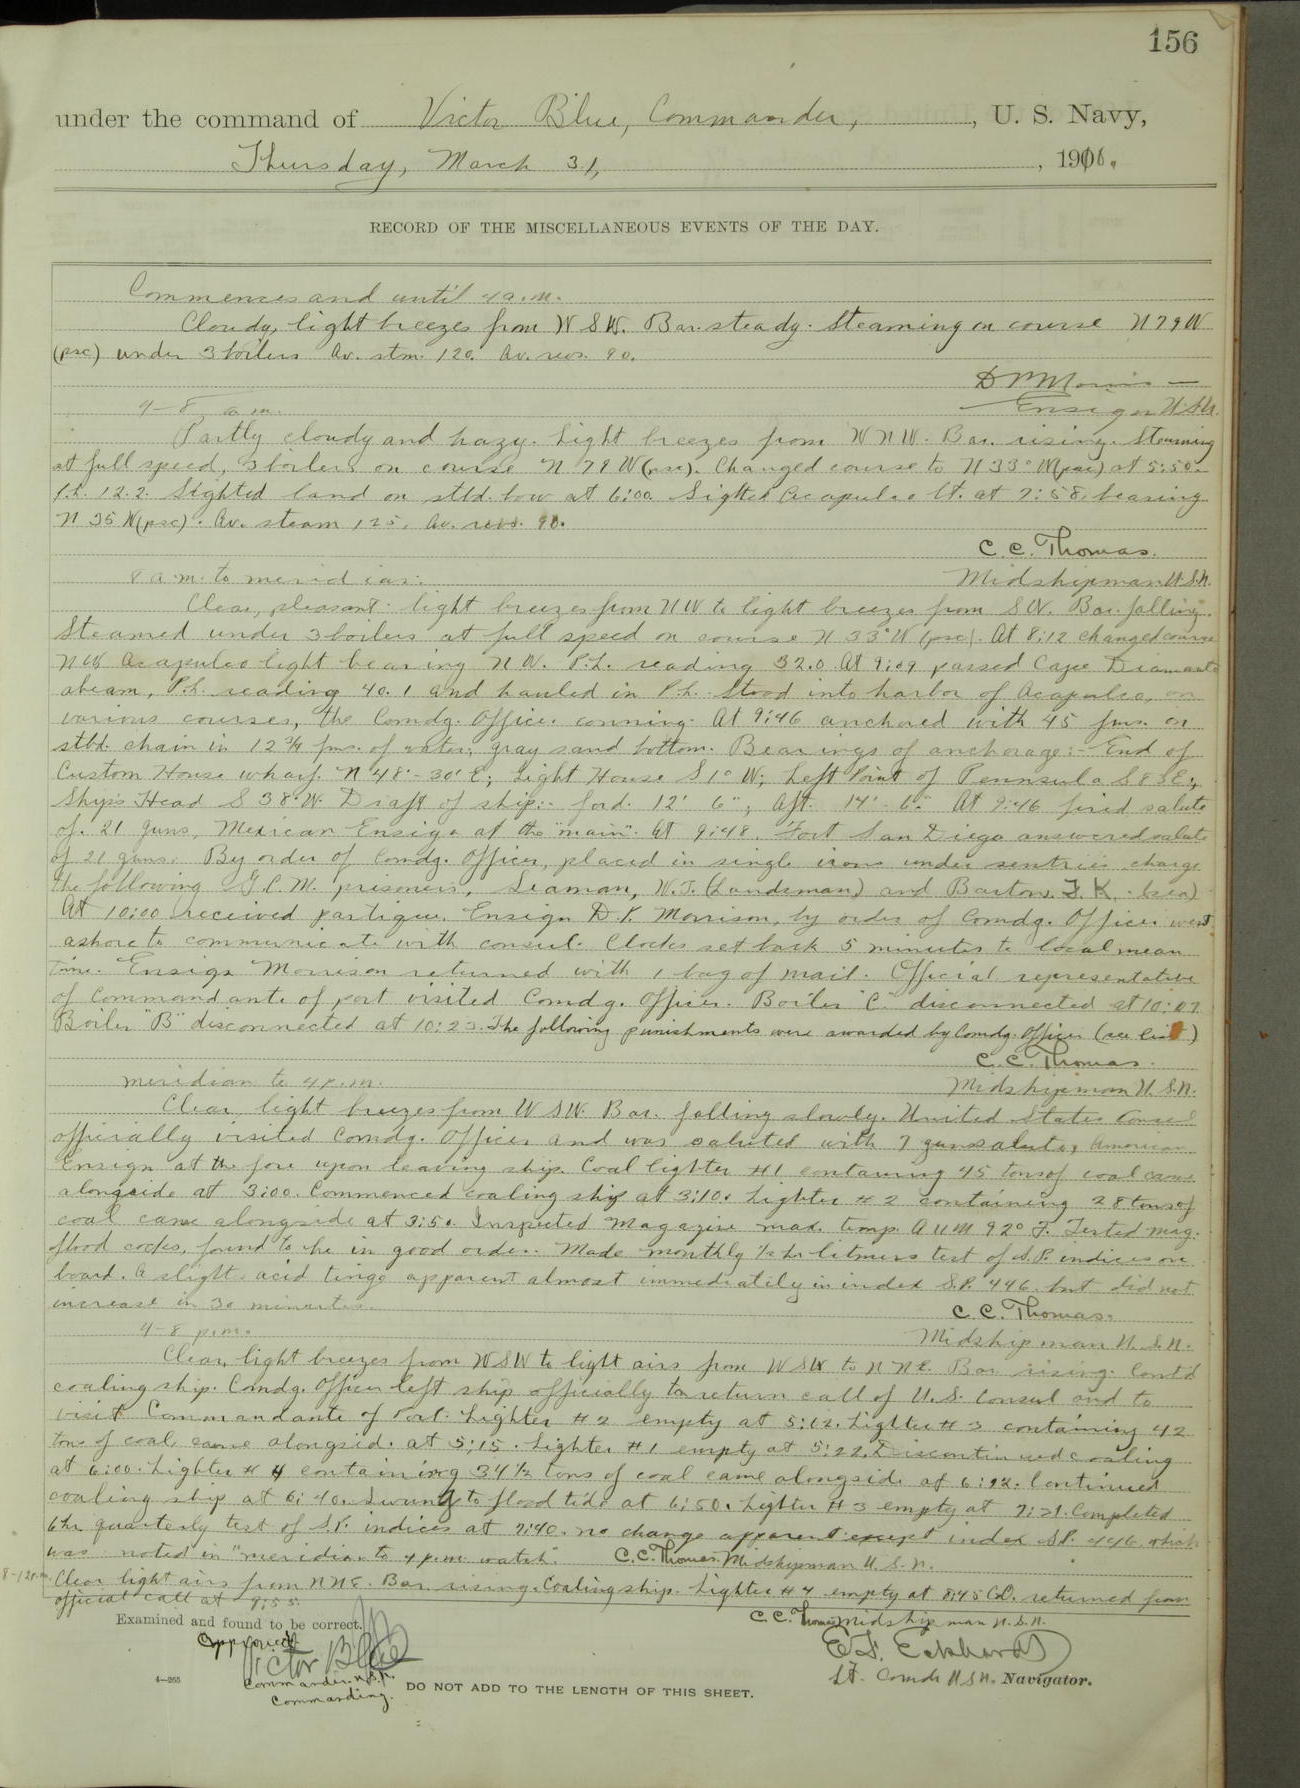 156
under the command of Victor Blue, Commander, , U. S. Navy,
Thursday, March 31, , 1910.
RECORD OF THE MISCELLANEOUS EVENTS OF THE DAY.
Commences and until 4 a.m.
Cloudy, light breezes from W S W. Bar. steady. Steaming on course N 79 W
(psc) under 3 boilers Av. stm. 120. Av. revs. 90.
Ensign U.S.N.
4-8 a.m.
Partly cloudy and hazy. Light breezes from W N W. Bar. rising. Steaming
at full speed, 3 boilers on course N 79 W (psc). Changed course to N 33° W (psc) at 5:50.
P.L. 12.2. Sighted land on stbd. bow at 6:00. Sighted Acapulco lt. at 7:58, bearing
N 35 W (psc). Av. steam 125, Av. revs. 90.
C. C. Thomas.
8 a.m. to meridian: Midshipman U.S.N.
Clear, pleasant. light breezes from N W to light breezes from S W. Bar. falling.
Steamed under 3 boilers at full speed on course N 33° W (psc). At 8:12 changed course
N W Acapulco light bearing N W. P.L. reading 32.0 At 9:09 passed Cape Diamante
abeam, P.L. reading 40.1 and hauled in P.L. Stood into harbor of Acapulco, on
various courses, the Comdg. Officer conning. At 9:46 anchored with 45 fms. on
stbd. chain in 12 3/4 fms. of water, gray sand bottom. Bearings of anchorage:- End of
Custom House wharf N 48°-30' E; Light House S 1° W; Left Point of Peninsula S 83 E;
Ship's Head S 38° W. Draft of ship:- ford. 12' 6"; Aft. 14'-6". At 9:46 fired salute
of 21 guns, Mexican Ensign at the "main". At 9:48, Fort San Diego answered salute
of 21 guns. By order of Comdg. Officer, placed in single irons under sentries charge
the following G.C.M. prisoners, Seaman, W.J. (Landsman) and Barton, F. K.
At 10:00 received pratique. Ensign D. P. Morrison, by order of Comdg. Officer went
ashore to communicate with consul. Clocks set back 5 minutes to local mean
time. Ensign Morrison returned with 1 bag of mail. Official representative
of Commandante of port visited Comdg. Officer. Boiler "C" disconnected at 10:07
Boiler "B" disconnected at 10:23. The following punishments were awarded by Comdg. Officer (see list)
C. C. Thomas.
meridian to 4 p.m. Midshipman U.S.N.
Clear, light breezes from W S W. Bar. falling slowly. United States Consul
officially visited Comdg. Officer and was saluted with 7 gun salute, American
Ensign at the fore upon leaving ship. Coal lighter #1 containing 45 tons of coal came
alongside at 3:00. Commenced coaling ship at 3:10. Lighter #2 containing 28 tons of
coal came alongside at 3:50. Inspected Magazine max. temp. 92° F. Tested mag.
flood cocks, found to be in good order. Made monthly 1/2 hr litmus test of S.P. indices on
board. A slight acid tinge apparent almost immediately in index S.P. 446, but did not
increase in 30 minutes.
C. C. Thomas.
4-8 p.m. Midshipman U.S.N.
Clear, light breezes from W S W to light airs from W S W to N N E. Bar. rising. Cont'd
coaling ship. Comdg. Officer left ship officially to return call of U.S. Consul and to
visit Commandante of Port. Lighter #2 empty at 5:12. Lighter #3 containing 42
tons of coal came alongside at 5:15. Lighter #1 empty at 5:22. Discontinued coaling
at 6:00. Lighter #4 containing 34 1/2 tons of coal came alongside at 6:12. Continued
coaling ship at 6:40. Swung to flood tide at 6:50. Lighter #3 empty at 7:21. Completed
6 hr. quarterly test of S.P. indices at 7:40. no change apparent except index S.P. 446, which
was noted in "meridian to 4 p.m. watch". C. C. Thomas. Midshipman U.S.N.
8-12 p.m. Clear light airs from N N E. Bar. rising. Coaling ship. Lighter #4 empty at 8:45 C.O. returned from
official call at 9:55. C. C. Thomas Midshipman U.S.N.
Examined and found to be correct.
Approved
Victor Blue
Commander, U.S.N.
Commanding.
Lt. Comdr U.S.N. Navigator.
4—265
DO NOT ADD TO THE LENGTH OF THIS SHEET.